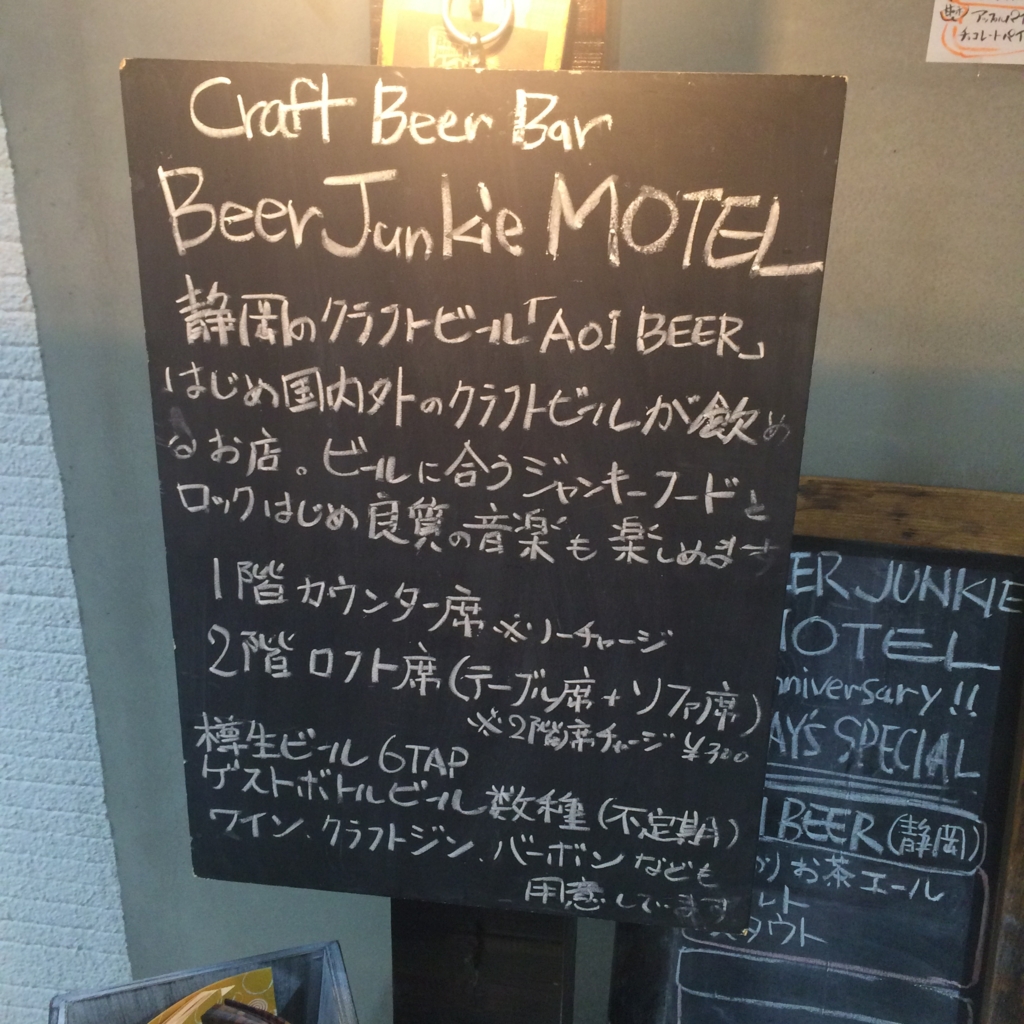 Craft Beer Bar
Beer Junkie MOTEL
静岡のクラフトビール「AOI BEER」
はじめ国内外のクラフトビールが飲め
るお店。ビールに合うジャンキーフードと
ロックはじめ良質の音楽も楽しめます
1階カウンター席 ※ノーチャージ
2階ロフト席(テーブル席+ソファ席)
※2階席チャージ ¥300
樽生ビール 6TAP
ゲストボトルビール数種(不定期)
ワイン、クラフトジン、バーボンなども
用意しています
ER JUNKIE
OTEL
nniversary!!
AY'S SPECIAL
BEER(静岡)
お茶エール
ルト
タウト
チョコレートパイ